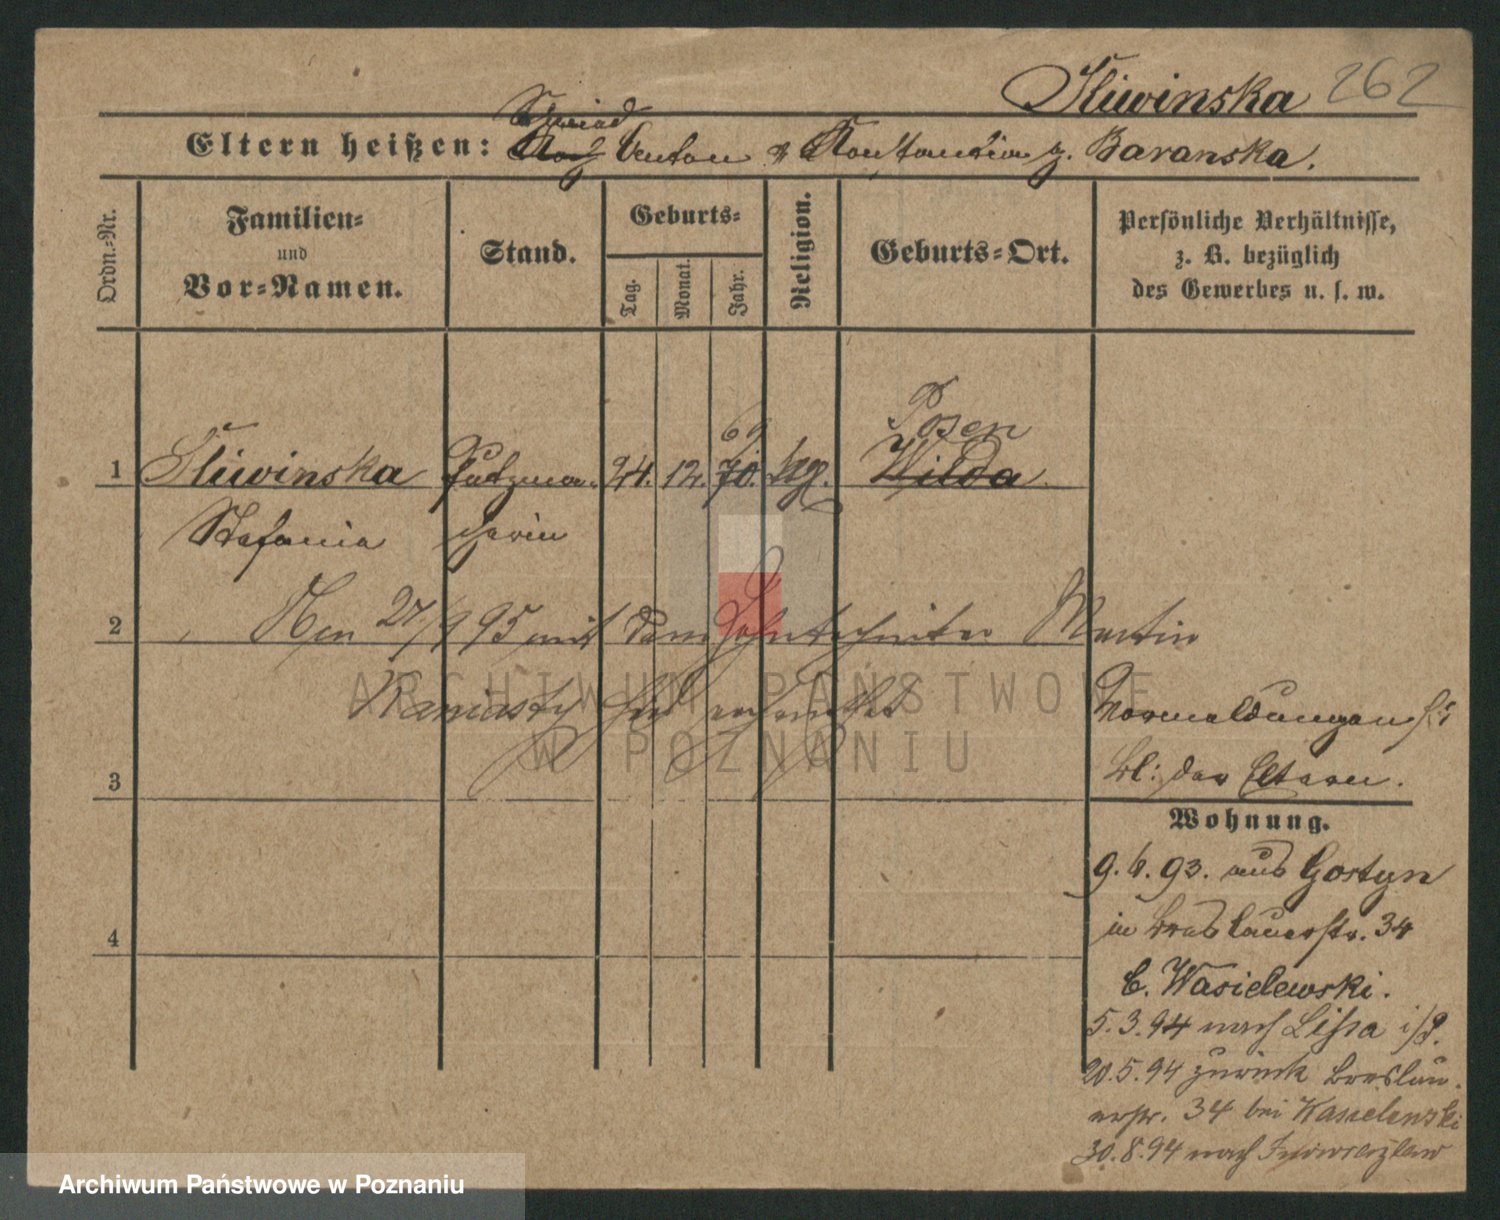 Sliwinska 262
Schmied
Eltern heißen: Anton u Konstantia g. Baranska.
Ordn.-Nr.
Familien-
und
Vor-Namen.
Stand.
Geburts-
Tag.
Monat.
Jahr.
Religion.
Geburts-Ort.
Persönliche Verhältnisse,
z. B. bezüglich
des Gewerbes u. s. w.
69 Posen
1 Sliwinska Putzma- 24. 12. 70. kg. Wilda
Stefania cherin
2 27/9 95 mit dem Zahntechniker Martin
Kaniasty hier verheirathet
Vormeldungen s.
Bl: der Eltern.
3
Wohnung.
9. 6. 93. aus Gostyn
in Breslauerstr. 34
b. Wasielewski.
4
5. 3. 94 nach Lissa i/P.
20. 5. 94 zurück Breslau-
erstr. 34 bei Wasielewski
30. 8. 94 nach Inowrazlaw
ARCHIWUM PAŃSTWOWE
W POZNANIU
Archiwum Państwowe w Poznaniu